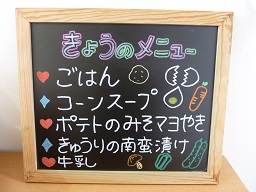 きょうのメニュー
ごはん
コーンスープ
ポテトのみそマヨやき
きゅうりの南蛮漬け
牛乳し